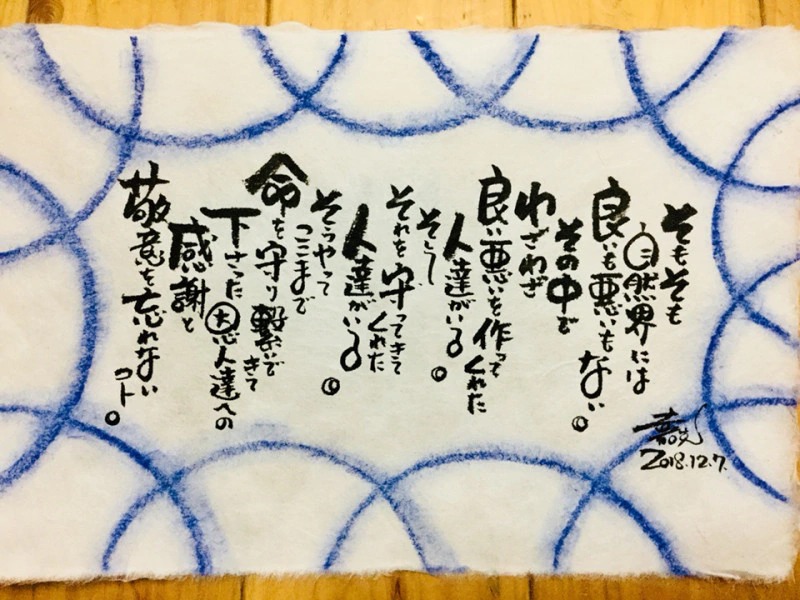 そもそも
自然界には
良いも悪いもない。
その中で
わざわざ
良い悪いを作ってくれた
人達がいる。
そして
それを守ってきてくれた
人達がいる。
そうやって
ここまで
命を守り繋いできて
下さった大恩人達への
感謝と
敬意を忘れない
コト。
2018.12.7.